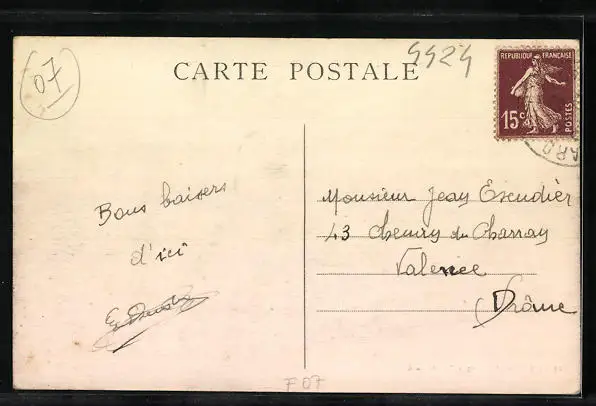 07
CARTE POSTALE
4424
REPUBLIQUE FRANÇAISE
15c
POSTES
ARD
Bons baisers
d'ici
Monsieur Jean Escudier
43 Chemin du Charran
Valence
Drôme
F07